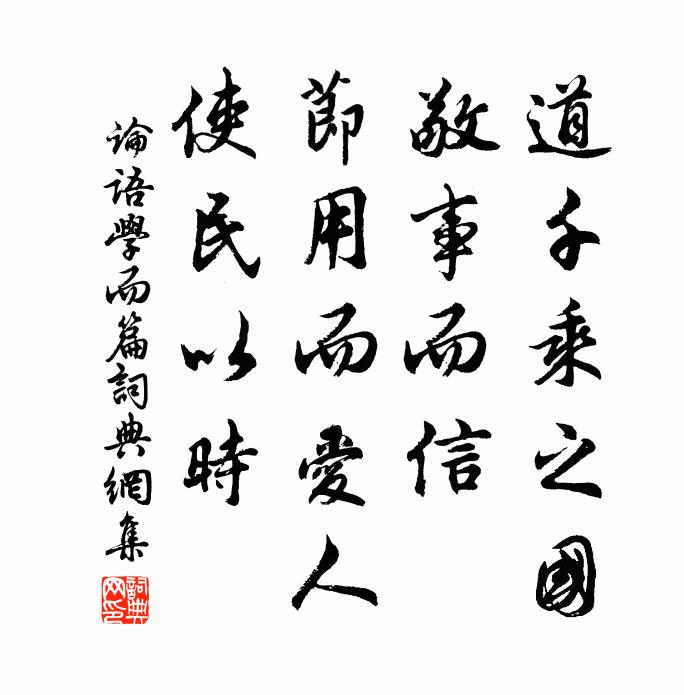 道千乘之國
敬事而信
節用而愛人
使民以時
論語學而篇詞典網集
詞典網印